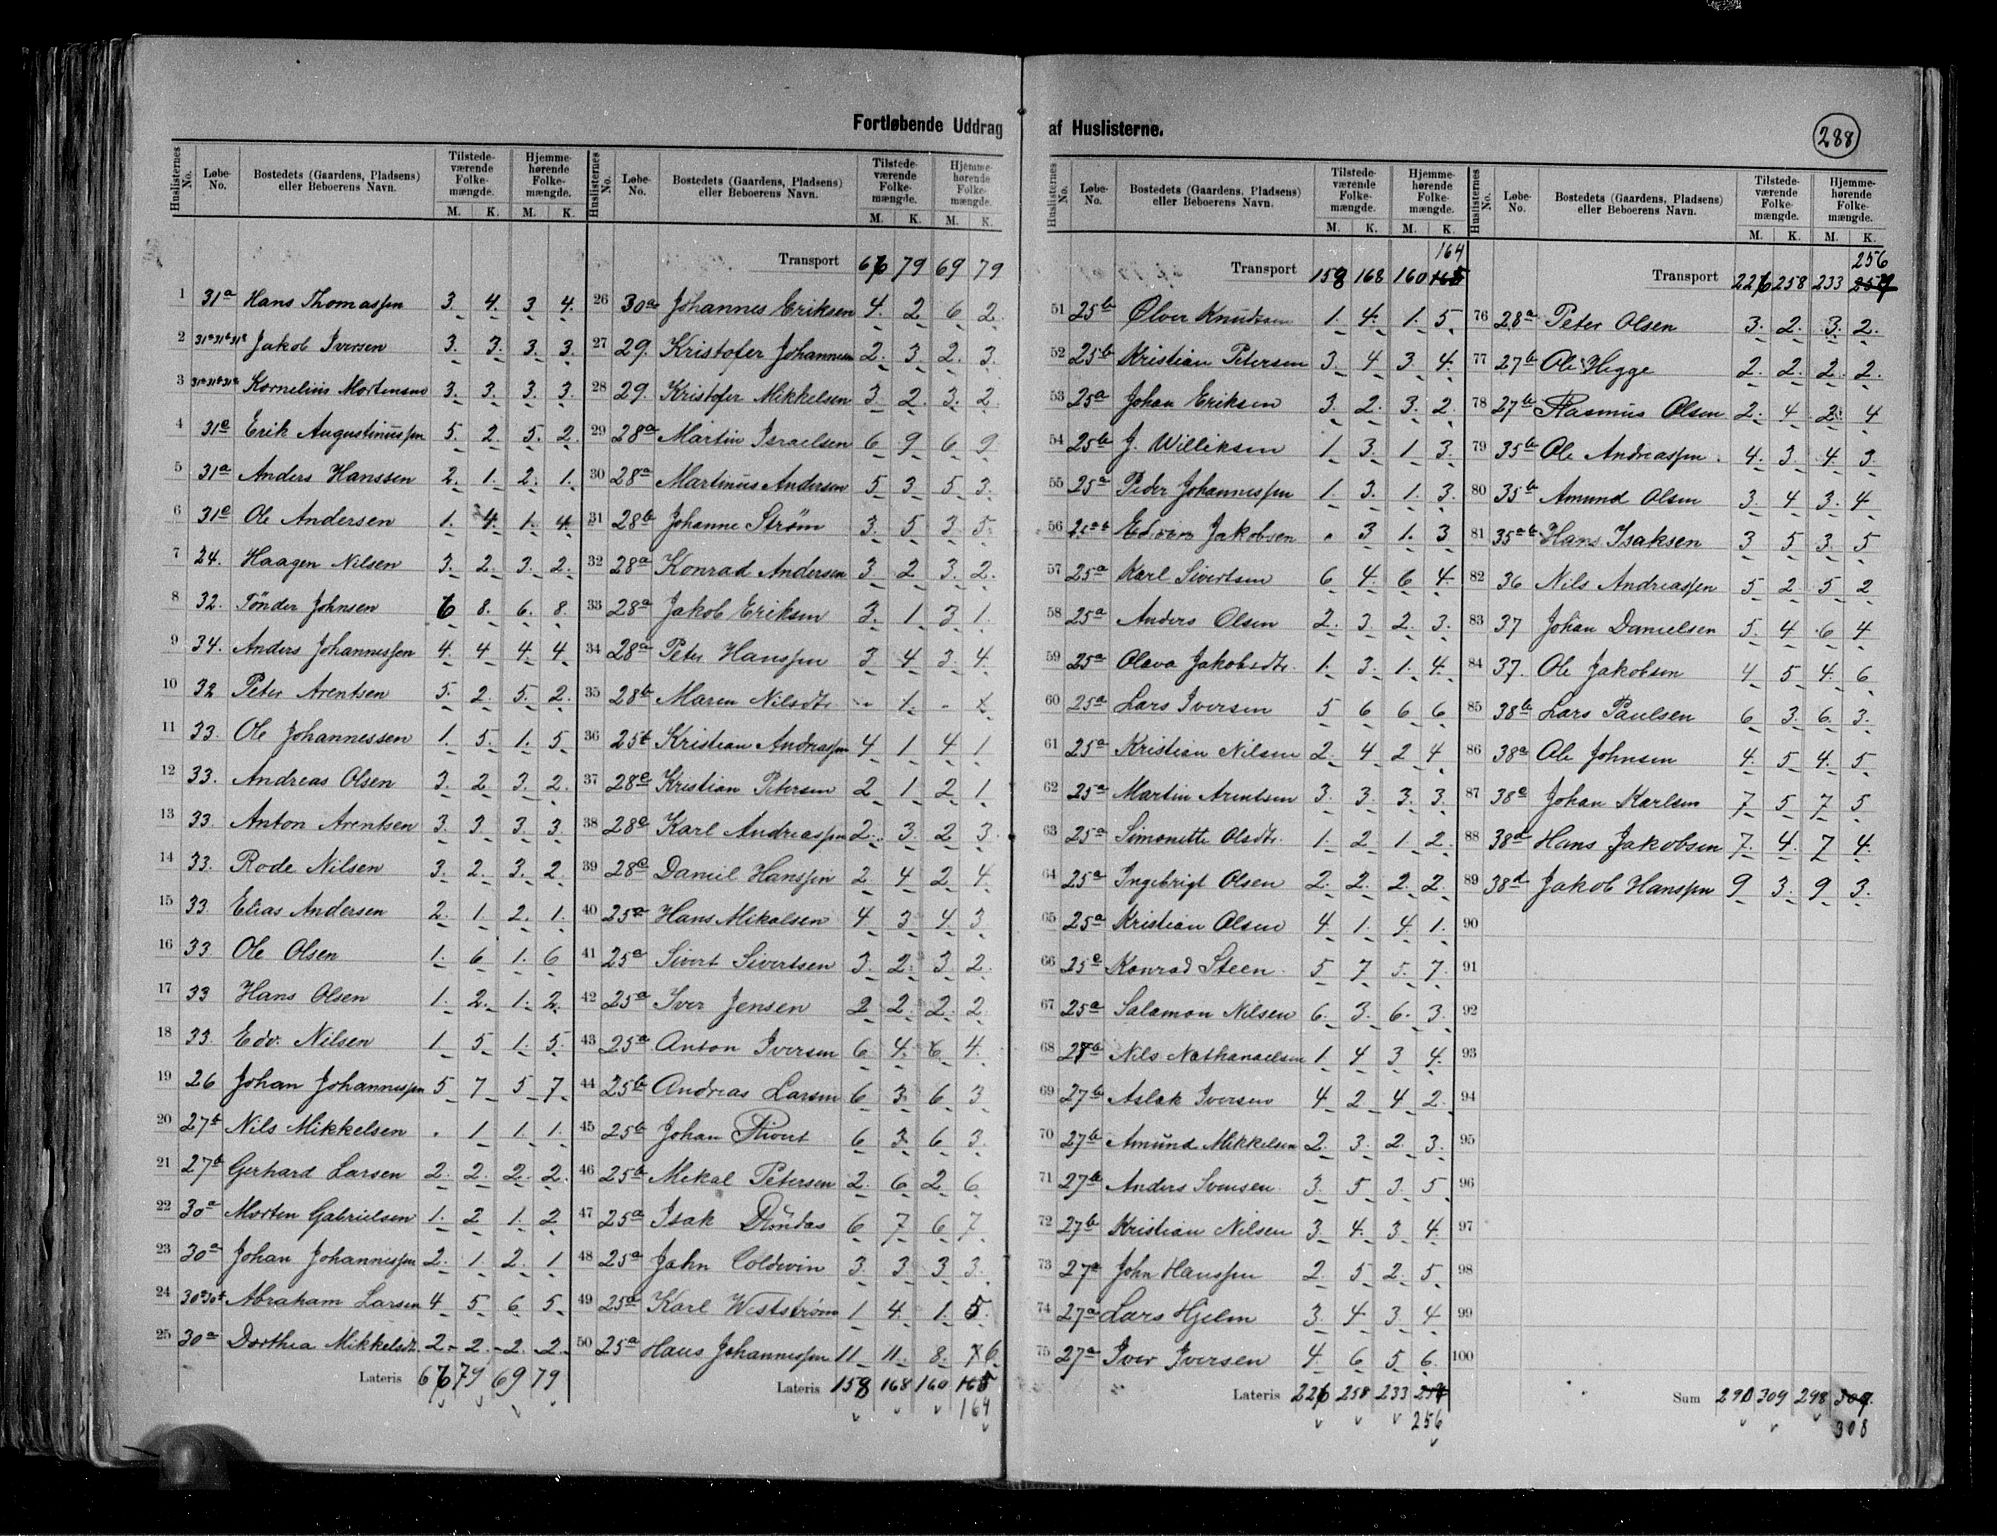 Fortløbende Uddrag af Huslisterne.
288
Huslisternes No. Løbe-No. Bostedets (Gaardens, Pladsens) eller Beboerens Navn. Tilstedeværende Folkemængde. M. K. Hjemmehørende Folkemængde. M. K.
1 31a Hans Thomassen 3. 4. 3. 4.
2 31a 31b 31c Jakob Iversen 3. 3. 3. 3.
3 Kornelius Mortensen 3. 3. 3. 3.
4 31e Erik Augustinussen 5. 2. 5. 2.
5 31a Anders Hanssen 2. 1. 2. 1.
6 31e Ole Andersen 1. 4. 1. 4.
7 24. Haagen Nilsen 3. 2. 3. 2.
8 32. Tönder Johnsen 6 8. 6. 8.
9 34. Anders Johannessen 4. 4. 4. 4.
10 32 Peter Arentsen 5. 2. 5. 2.
11 33. Ole Johannessen 1. 5. 1. 5.
12 33. Andreas Olsen 3. 2. 3. 2.
13 33. Anton Arentsen 3. 3. 3. 3.
14 33. Rode Nilsen 3. 2. 3. 2.
15 33 Elias Andersen 2. 1. 2. 1.
16 33. Ole Olsen 1. 6 1. 6
17 33 Hans Olsen 1. 2. 1. 2.
18 33. Edv. Nilsen 1. 5. 1. 5.
19 26 Johan Johannessen 5 7 5 7.
20 27b Nils Mikkelsen . 1 1. 1.
21 27b Gerhard Larsen 2. 2. 2. 2.
22 30a Morten Gabrielsen 1. 2 1. 2
23 30a Johan Johannessen 2. 1. 2. 1
24 30a 30b Abraham Larsen 4 5 6 5
25 30a Dorthea Mikkelsdt. 2 2 2 2
Lateris 66 79 69 79
Huslisternes No. Løbe-No. Bostedets (Gaardens, Pladsens) eller Beboerens Navn. Tilstedeværende Folkemængde. M. K. Hjemmehørende Folkemængde. M. K.
Transport 66 79 69 79
26 30a Johannes Eriksen 4 2 6 2.
27 29. Kristofer Johannesen 2. 3. 2. 3.
28 29. Kristofer Mikkelsen 3. 2. 3. 2
29 28a Martin Israelsen 6 9 6 9
30 28a Martinus Andersen 5 3 5 3.
31 28b Johanne Strøm 3. 5 3 5.
32 28a Konrad Andersen 3 2 3. 2.
33 28a Jakob Eriksen 3. 1 3 1.
34 28a Peter Hanssen 3 4 3. 4.
35 28b Maren Nilsdtr. - 1. -
36 25b Kristian Andreassen 4 1 4 1
37 28e Kristian Petersen 2 1 2 1
38 28e Karl Andreassen 2. 3. 2 3.
39 28e Daniel Hanssen 2 4 2 4
40 25a Hans Mikalsen 4 3 4 3
41 25a Sivert Sivertsen 3. 2. 3. 2.
42 25a Iver Jensen 2 2. 2 2
43 25a Anton Iversen 6 4. 6 4.
44 25b Andreas Larsen 6 3 6 3
45 25b Johan 6 3 6 3.
46 25b Mikal Petersen 2. 6 2 6
47 25a Isak 6 7 6 7.
48 25a Jahn Coldevin 3 3 3 3.
49 25a Karl Weststrøm 1 4. 1. 5.
50 25a Hans Johannessen 11 11. 8. 6
Lateris 158 168 160 165
164
Huslisternes No. Løbe-No. Bostedets (Gaardens, Pladsens) eller Beboerens Navn. Tilstedeværende Folkemængde. M. K. Hjemmehørende Folkemængde. M. K.
164
Transport 158 168 160 165
51 25b Ølver Knudtsen 1. 4. 1. 5
52 25b Kristian Petersen 3 4 3 4.
53 25a Johan Eriksen 3. 2. 3. 2.
54 25b J. Williksen 1 3. 1 3.
55 25a Peder Johannessen 1. 3. 1. 3.
56 Edvom Jakobsen . 3 1. 3
57 25a Karl Sivertsen 6 4. 6 4.
58 25a Anders Olsen 2. 3. 2. 3.
59 25a Olava Jakobsdtr. 1. 3. 1. 4.
60 25a Lars Iversen 5 6 6 6
61 25a Kristian Nilsen 2 4 2 4
62 25a Martin Arentsen 3. 3. 3. 3.
63 25a Simonette Olsdtr. 1. 2 1. 2.
64 25a Ingebrigt Olsen 2. 2. 2. 2.
65 25a Kristian Olsen 4 1. 4. 1.
66 25e Konrad Steen. 5 7. 5. 7.
67 25a Salamon Nilsen 6. 3. 6. 3.
68 28b Nils Nathanaelsen 1 4 3 4.
69 27b Aslak Iversen 4 2 4 2
70 27b Amund Mikkelsen 2. 3. 2. 3.
71 27b Anders Svensen 3. 5 3 5
72 27b Kristian Nilsen 3 4. 3 4.
73 27a John Hanssen 2. 5 2. 5
74 27a Lars Hjelm 3. 4 3 4
75 27a Iver Iversen 4. 6 5 6.
Lateris 226 258 233 257
256
Huslisternes No. Løbe-No. Bostedets (Gaardens, Pladsens) eller Beboerens Navn. Tilstedeværende Folkemængde. M. K. Hjemmehørende Folkemængde. M. K.
256
Transport 226 258 233 257
76 28a Peter Olsen 3. 2. 3. 2.
77 27b Ole Hegge 2. 2. 2. 2.
78 27b Rasmus Olsen 2. 4 2. 4
79 35b Ole Andreassen . 4. 3. 4. 3
80 35b Amund Olsen 3. 4 3. 4
81 35ab Hans Isaksen 3 5 3. 5
82 36 Nils Andreassen 5 2 5 2
83 37 Johan Danielsen 5. 4 6 4
84 37. Ole Jakobsen 4 5 4. 6
85 38b Lars Paulsen 6 3. 6. 3.
86 38a Ole Johnsen 4. 5 4. 5
87 38e Johan Karlsen 7 5 7 5
88 38d Hans Jakobsen 7. 4. 7 4.
89 38d Jakob Hanssen 9 3. 9 3.
90
91
92
93
94
95
96
97
98
99
100
Sum 290 309 298 309.
308